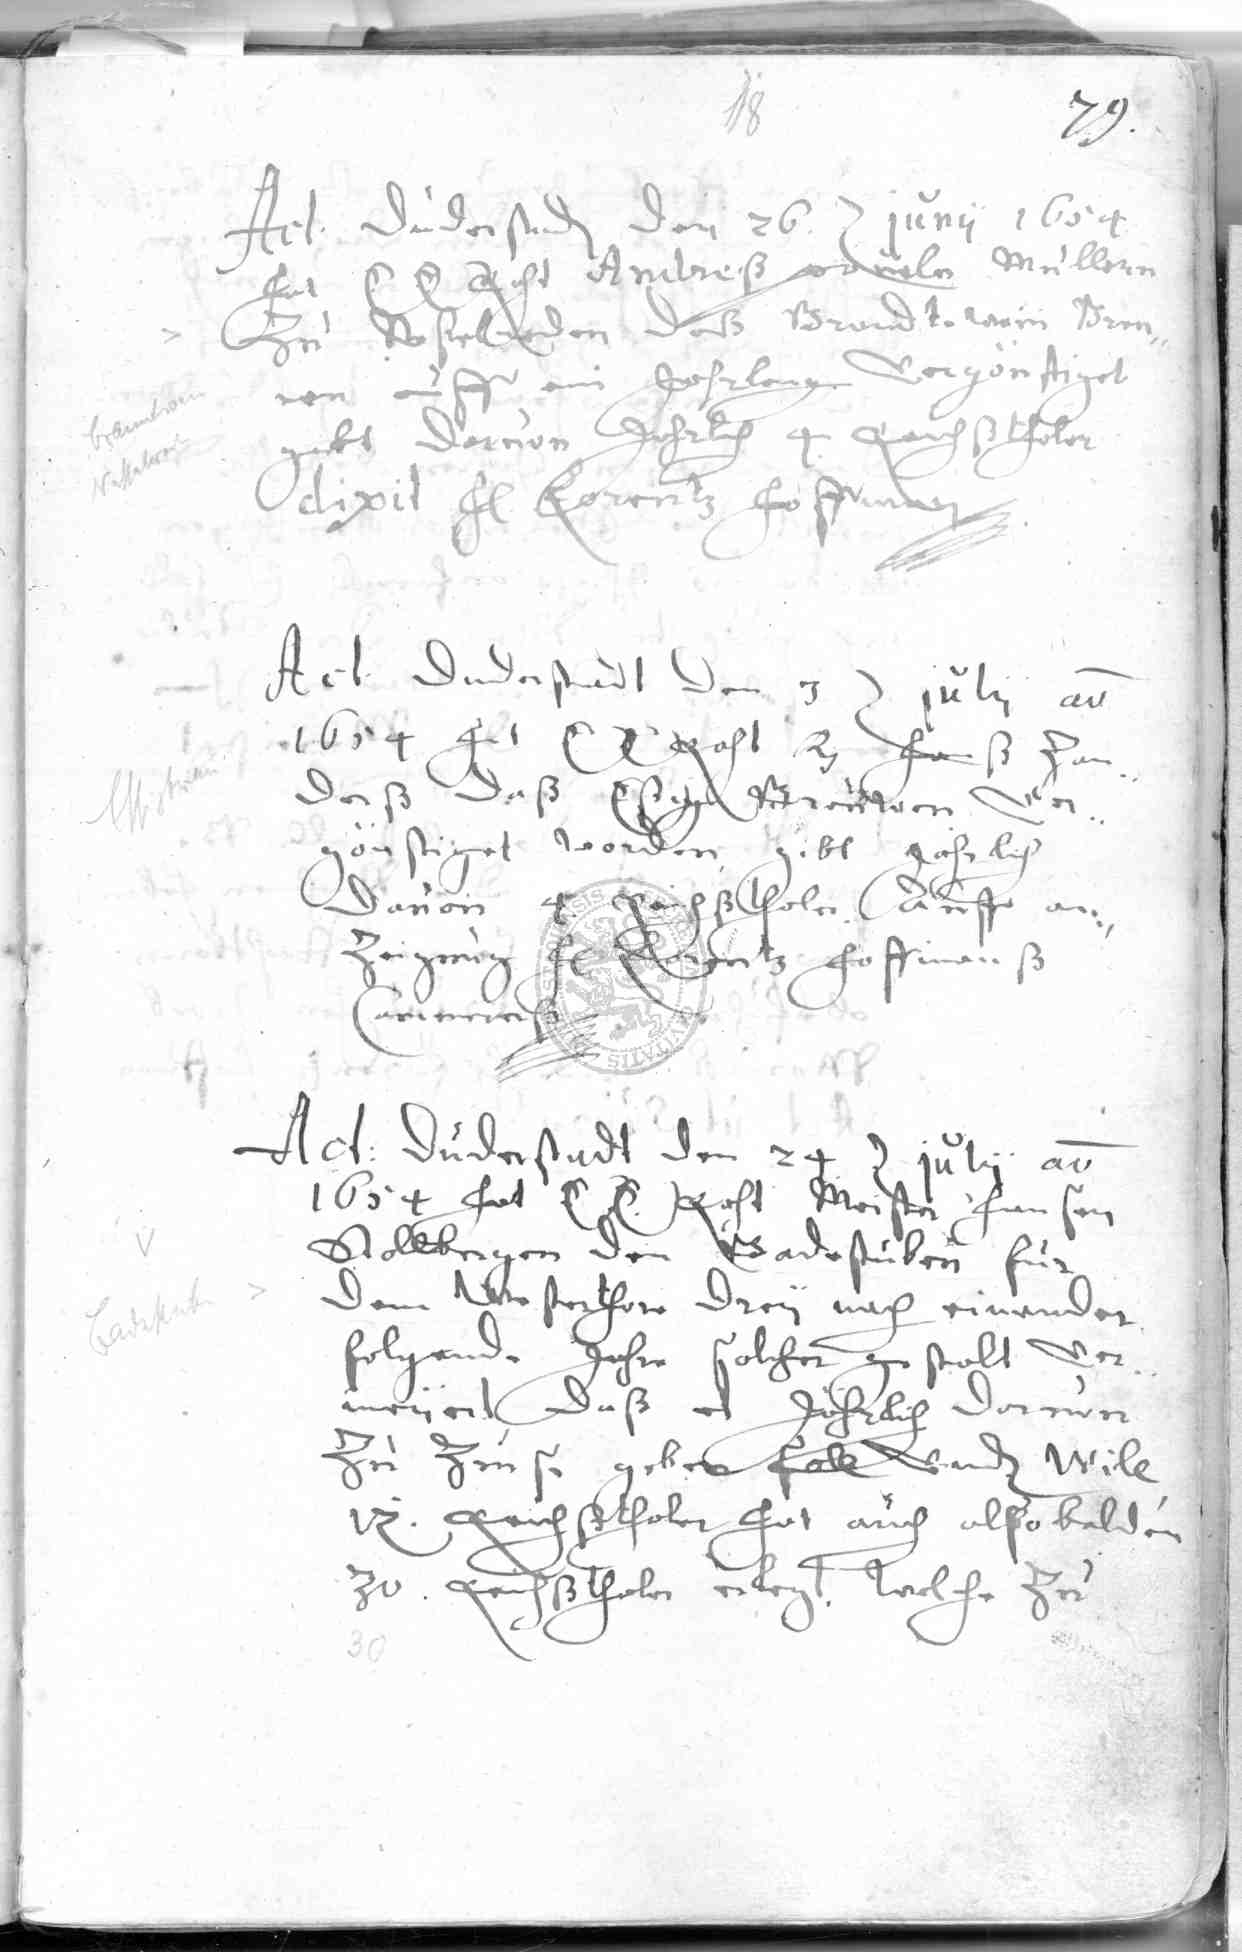 18
79.
Act. Duderstadt den 26. Junij 1654
hat E E Raht Andreß Müllern
Zu deß Brandtewein Bren„
nen auff ein Jahrlang Vergönstiget
gibt daruon Jährlich 4 Reichßthaler
dixit H Lorentz Hoffman
Act. Duderstadt den 3 Julij ao
1654 hat E E Raht Hanß Zan„
derß daß Eßig Brauwen Ver„
gönstiget worden gibt Jährlich
dauon 4 Reichßthaler Auff an„
Zeigung H Lorentz Hoffmanß
Cammerers
Act: Duderstadt den 24 Julij ao
1654 hat E E. Raht Meister Hansen
Stollbergen den Badestuben für
dem Westerthore dreij nach einander
folgende Jahre solcher gestalt Ver„
meijert daß er Jährlich daruon
Zu Zinse geben soll Vndt Will
Reichßthaler hat auch alßobalden
30. Reichßthaler erlegt, welche Zu
30
Badestube